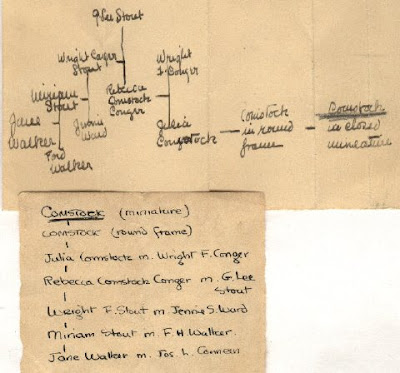 G Lee Stout
Wright Conger
Stout
Wright
F Conger
Miriam
Stout
Rebecca
Comstock
Conger
Jane
Walker
Jennie
Ward
Julia
Comstock
Comstock
in round
frame
Comstock
in closed
miniature
Ford
Walker
COMSTOCK (miniature)
COMSTOCK (round frame)
Julia Comstock m. Wright F. Conger
Rebecca Comstock Conger m. G. Lee
Stout
Wright F. Stout m. Jennie S. Ward
Miriam Stout m. F. H. Walker.
Jane Walker m. Jos. L.